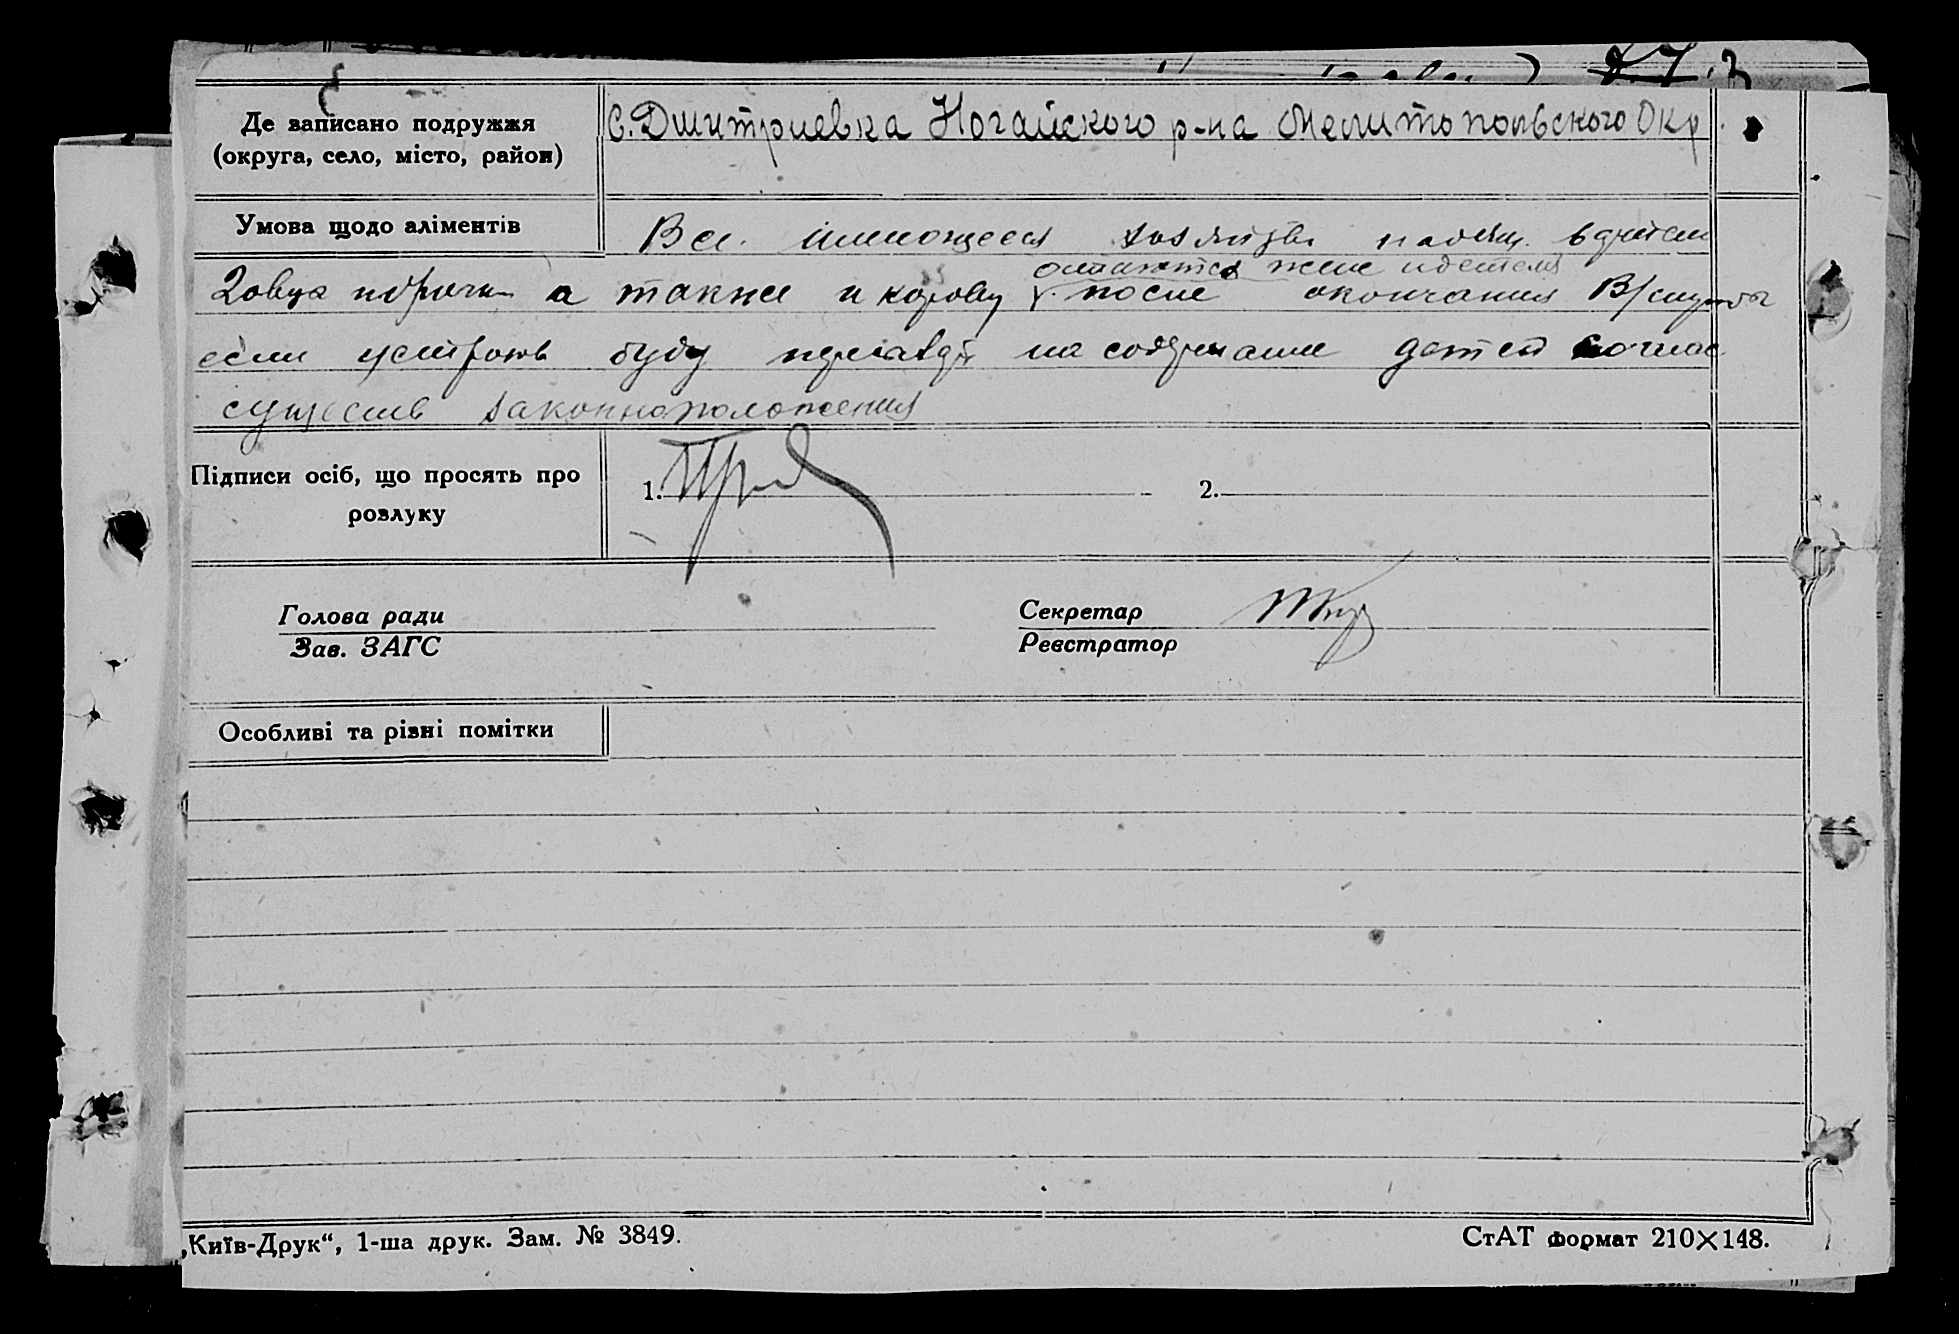 Де записано подружжя
(округа, село, місто, район)
с. Дмитриевка Ногайского р-на Мелитопольского Окр.
Умова щодо аліментів
Все имеющееся
остаются жене и детям
2 овцы а также и корову после окончания В/службы
если буду на содержание детей
существ законноположения
Підписи осіб, що просять про
розлуку
1.
2.
Голова ради
Зав. ЗАГС
Секретар
Реєстратор
Особливі та різні помітки
„Київ-Друк“, 1-ша друк. Зам. № 3849.
СтАТ формат 210×148.